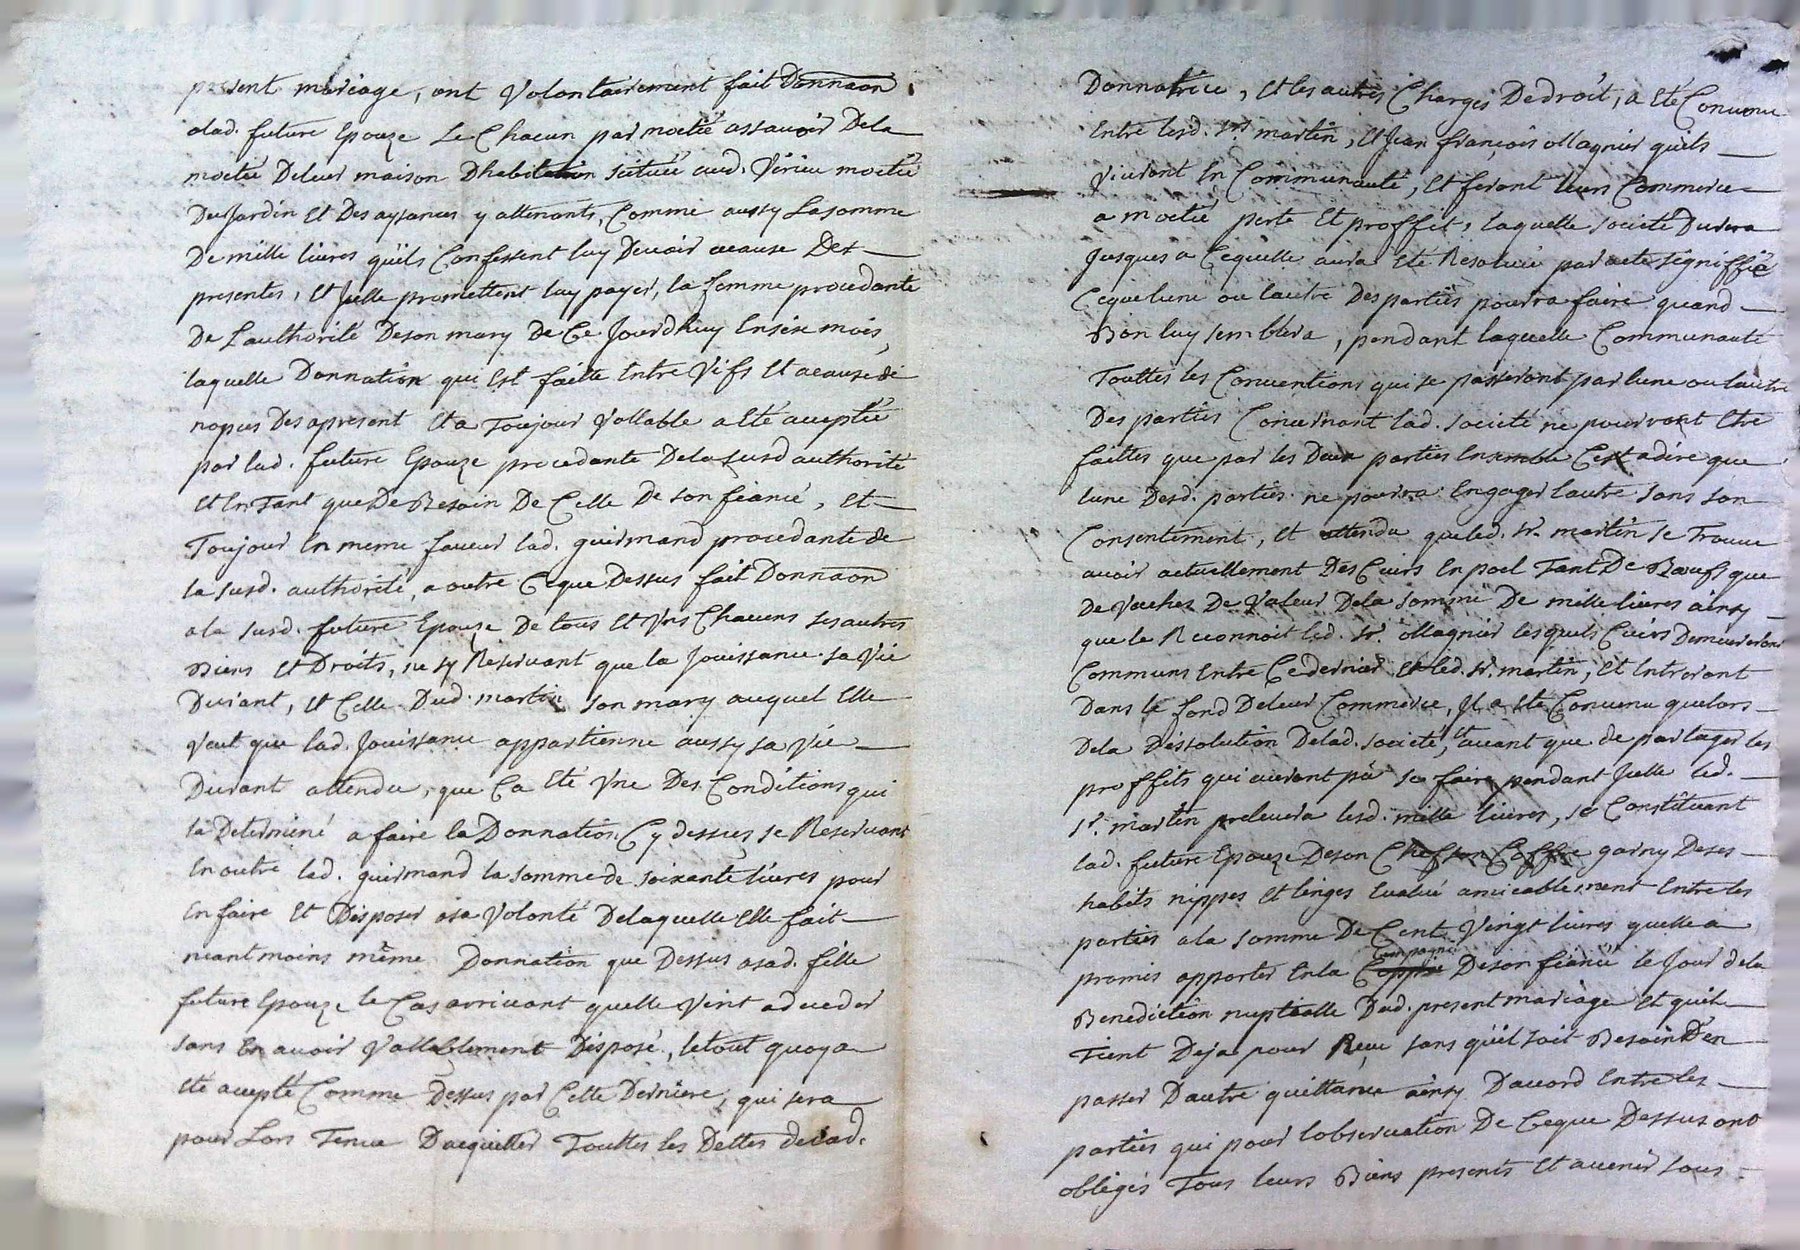 present mariage, ont Volontairement fait Donnaon
alad. future Epouze Le Chacun par moetié assavoir Dela
moetié Deleur maison Dhabitation scituée aud. Vérieu moetié
Du Jardin Et Des aysances y attenants, Comme aussy La somme
De mille livres qüils Confessent luy Devoir acause Des
presentes, Et Jcelle promettent luy payer, la femme procedante
De L'authorité Deson mary De Ce Jourdhuy Ensix mois,
laquelle Donnation qui Est faitte Entre Vifs Et acause de
nopces Des apresent Et a Toujour Vallable a Eté aceptée
par lad. future Epouze procedante Dela susd authorité
Et En Tant que De Besoin De Celle De son fiancé, Et
Toujour En meme faveur lad. guirmand procedante de
la susd. authorité, a outre Ceque Dessus fait Donnaon
ala susd. future Epouze De tous Et Vns Chacuns ses autres
Biens Et Droits, ne sy Reservant que la Jouissance sa Vie
Durant, Et Celle Dud. martin son mary auquel Elle
Veut que lad. Jouissance appartienne aussy sa Vie
Durant attendu, que Ca Eté Vne Des Conditions qui
la Determiné a faire la Donnation Cy dessus se Reservant
En outre lad. guirmand la somme de soixante livres pour
En faire Et Disposer asa Volonté Delaquelle Elle fait
neantmoins même Donnation que Dessus asad. fille
future Epouze le Cas arrivant quelle Vint a deceder
sans En avoir Vallablement Disposé, le tout quoy a
Eté acepté Comme Dessus par Cette Derniere, qui sera
pour Lors Tenue Dacquitter Touttes les Dettes delad.
Donnatrice, Et les autres Charges De droit, a Eté Convenu
Entre lesd. srs martin, Et Jean françois ollagnier quils
Vivront En Communauté, Et feront leurs Commerce
a moetié perte Et proffit, laquelle societé Durera
Jusques a Cequelle aura Eté Resolüe par acte signiffié
Ceque lune ou lautre Des parties pourra faire quand
Bon luy semblera, pendant laquelle Communauté
Touttes les Conventions qui se passeront par lune ou lautre
Des parties Concernant lad. societé ne pourront Etre
faittes que par les Deux parties Ensemble Cest adire que
lune Desd. parties ne pourra Engager lautre sans son
Consentement, Et attendu queled. sr. martin se Trouve
avoir actuellement Des Cuirs En poel Tant De Bœufs que
De Vaches De Valeur Dela somme De mille livres ainsy
que le Reconnoit led. sr. ollagnier lesquels Cuirs Demeureront
Communs Entre Ce dernier Et led. sr. martin, Et Entreront
Dans le fond Deleur Commerce, Jl a Eté Convenu quelors
Dela Dissolution Delad. societé, Et avant que de partager les
proffits qui auront pû se faire pendant Jcelle led.
sr. martin prelevera lesd. mille livres, se Constituant
lad. future Epouze Deson Chef son Coffre garny Deses
habits nippes Et linges Evalué amicablement Entre les
parties ala somme De Cent Vingt livres quelle a
promis apporter En la Compagnie De son fiancé le Jour dela
Benediction nuptialle Dud. present mariage Et quil
Tient Deja pour Reçu sans qüil soit Besoin D'en
passer Dautre quittance ainsy Dacord Entre les
parties qui pour lobservation De Ceque Dessus ont
obligés Tous leurs Biens presents Et avenir sous